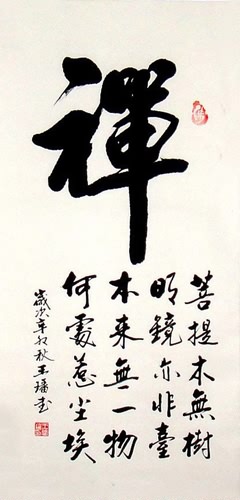 禪
菩提木無樹
明鏡亦非臺
本来無一物
何處惹尘埃
歲次辛卯秋王璠書